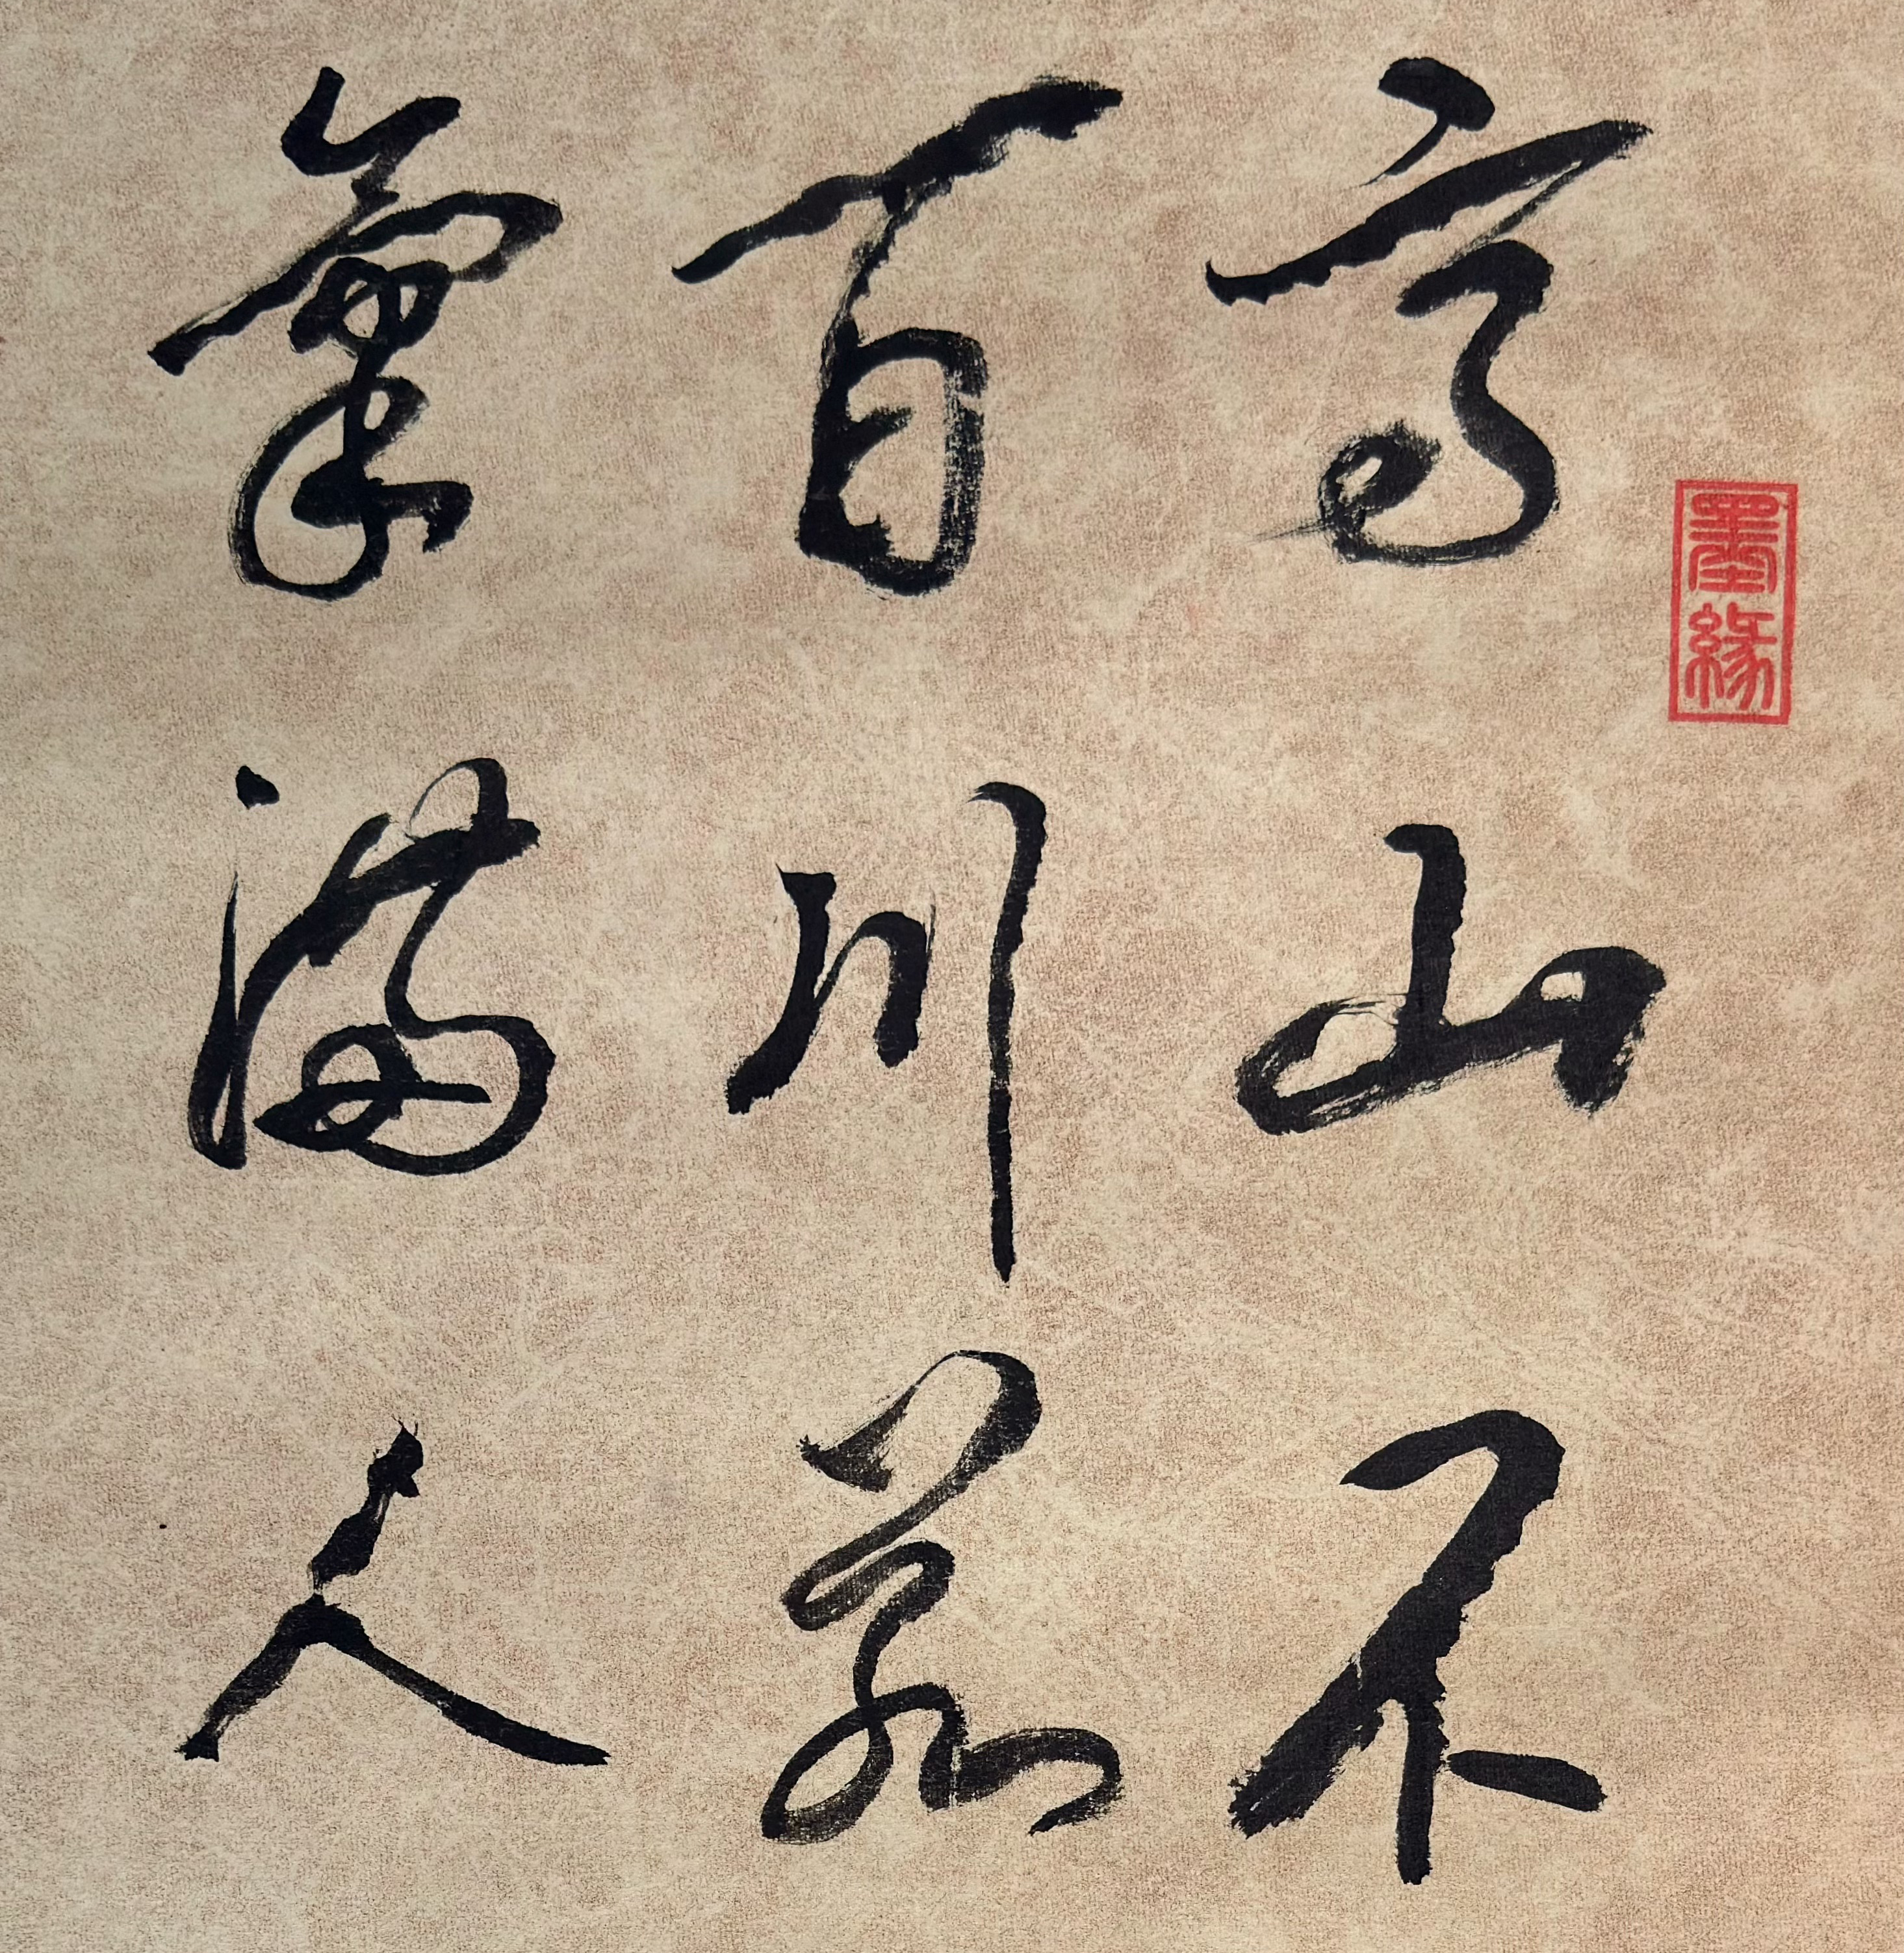 墨緣
高山不
百川
氣滿人